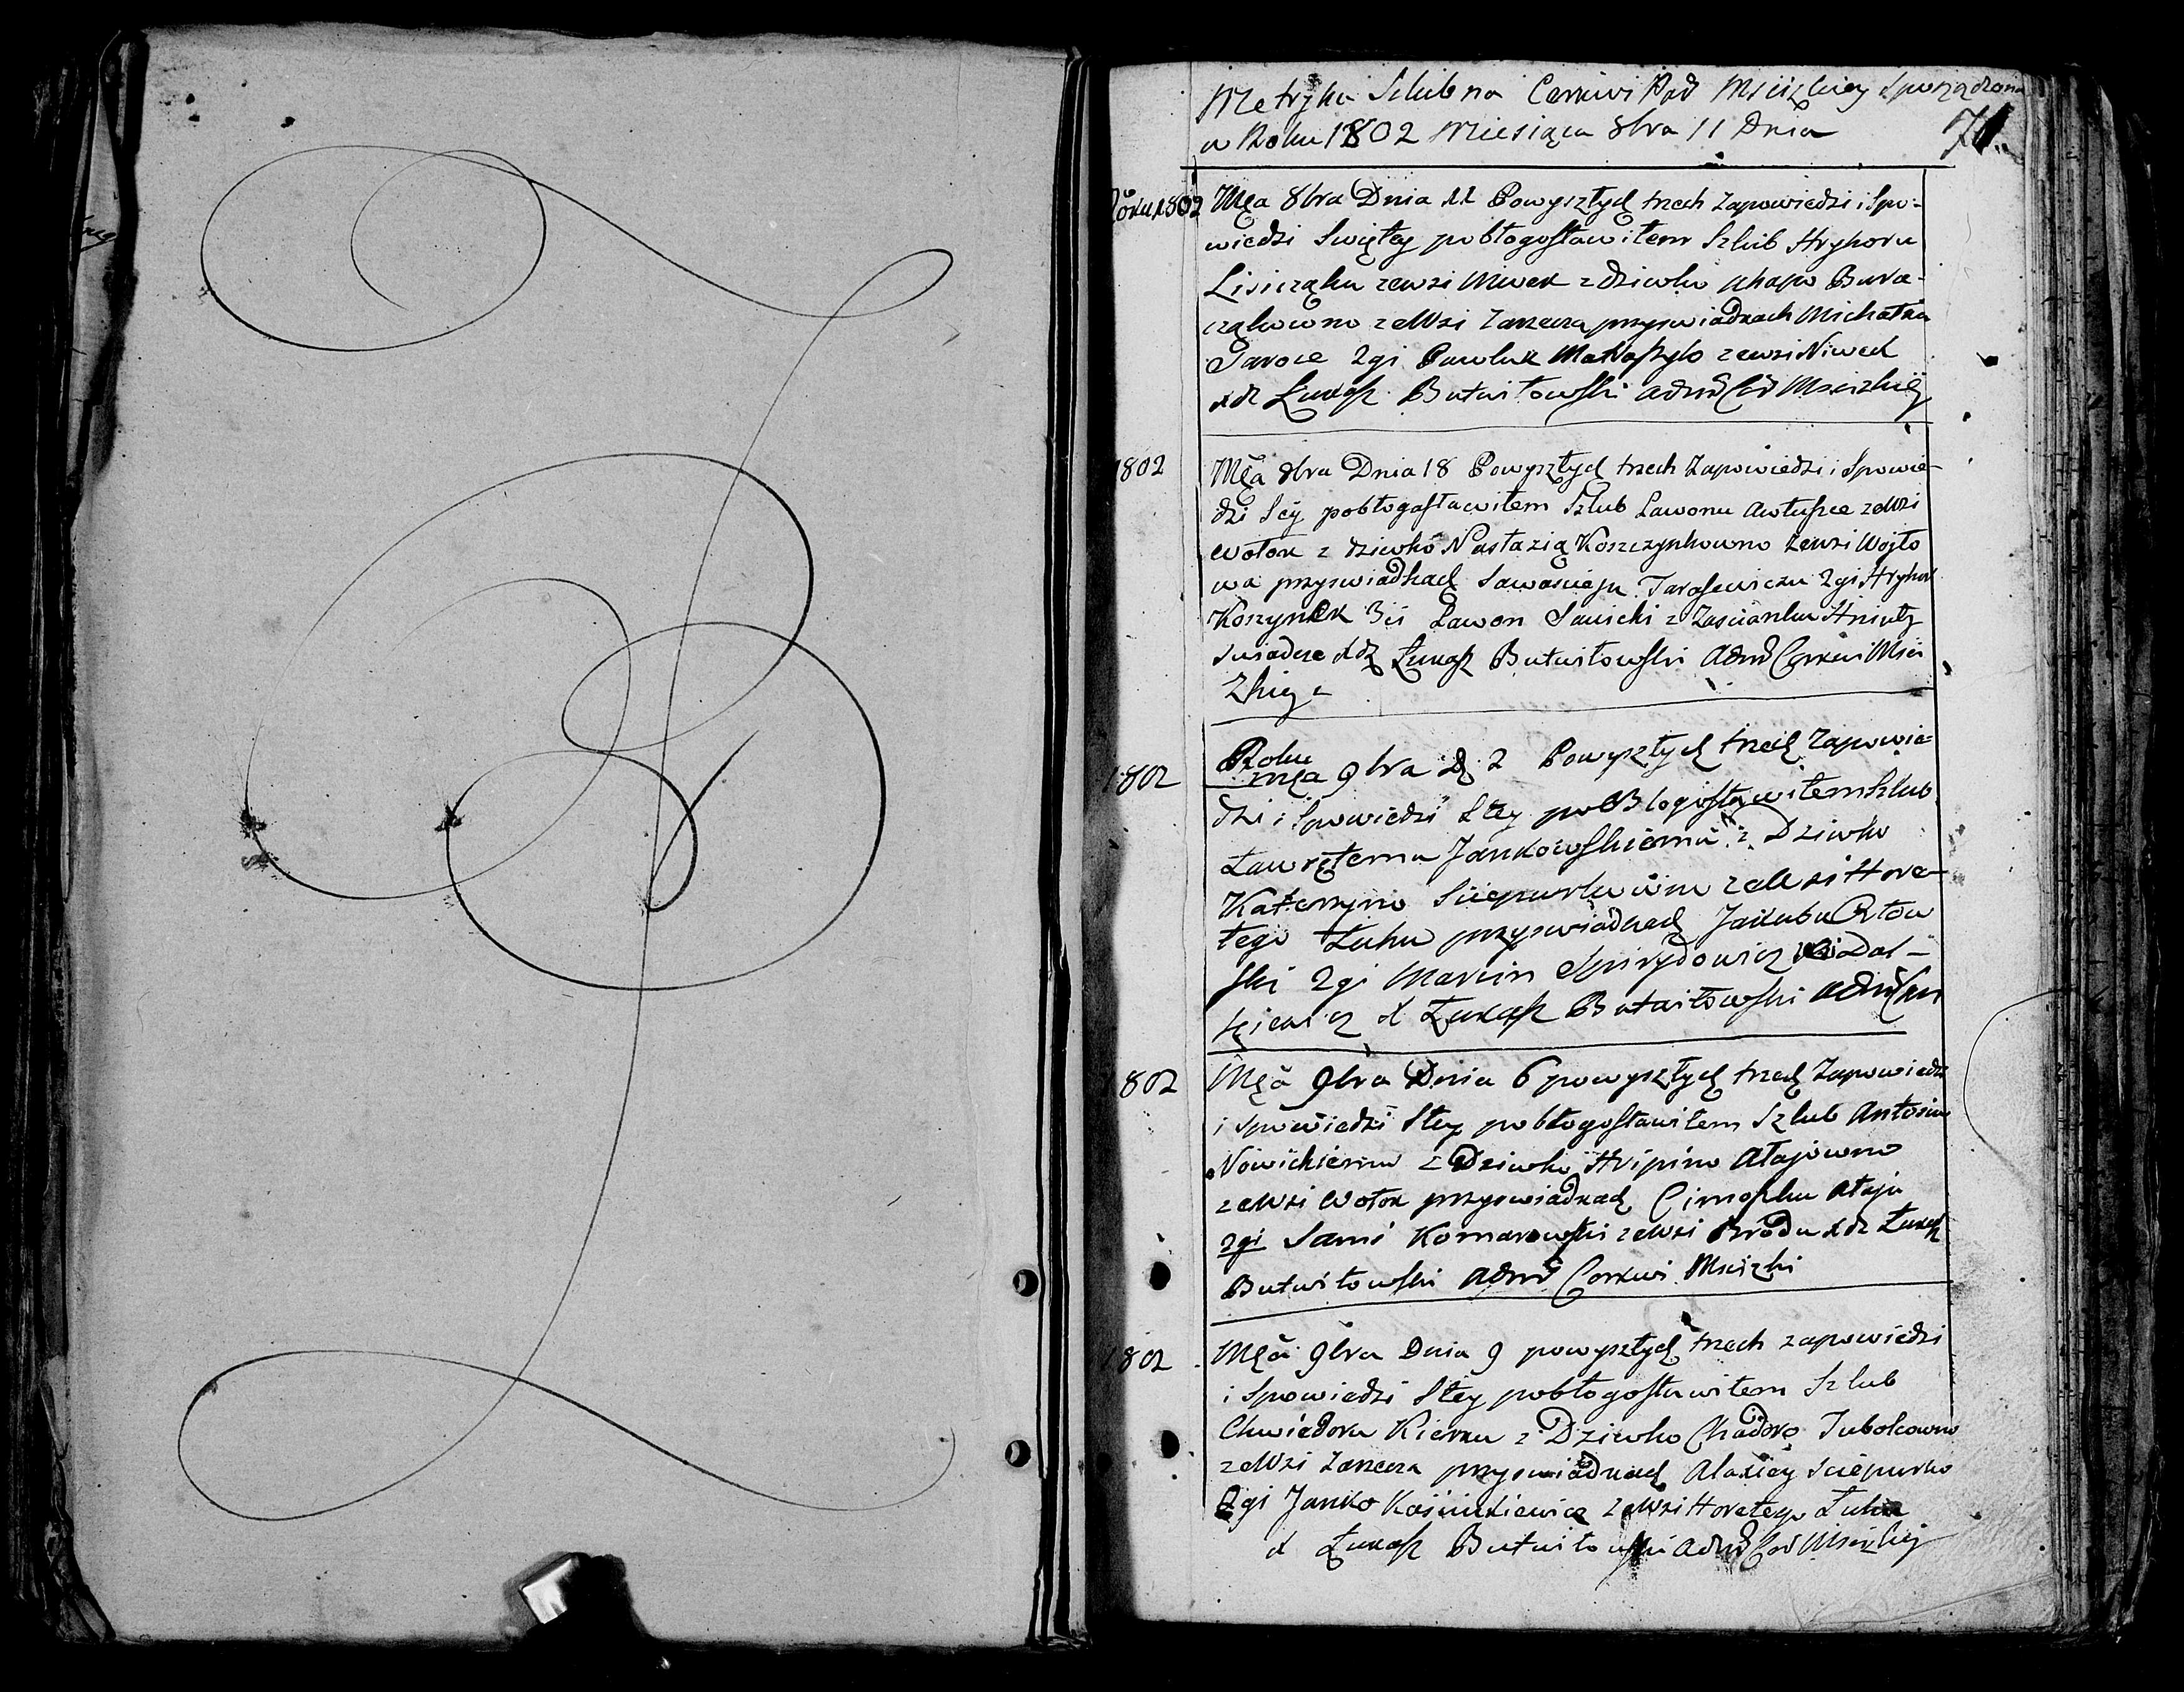 Metryka Szlubna Cerkwi Par Mścizkiey Sporządzona
w Roku 1802 Miesiąca 8bra 11 Dnia
71.
Roku 1802 Mca 8bra Dnia 11 Powyszłych trzech Zapowiedzi i Spo-
wiedzi Swiętey pobłogosławiłem Szlub Hryhoru
Lisicząku zewsi Niwek z dziewko Ahapo Bura-
cząkowno zeWsi Zarzecza przyswiadkach Michałku
Saroce 2gi Pawluk zewsi Niwek
xdz Łukasz Butwiłowski Admr Mścizkiey
1802 Mca 8bra Dnia 18 Powyszłych trzech Zapowiedzi i Spowie-
dzi Stey pobłogasławiłem Szlub Lawonu Awłuszce zeWsi
Wołok z dziewko Nastazią Koszczynkowno zewsi Woyto
wa przyswiadkach Sawascieju Tarasewiczu 2gi Hryhor
Koszynek 3ci Lawon Sawicki z Zascianku
swiadcze xdz Łukasz Butwiłowski Admr Cerkwi Msci
zkiey
1802 Roku mca 9bra d 2 Powyszłych trzech Zapowie-
dzi i Spowiedzi Stey poBłogosławiłem szlub
Ławrętemu Jankowskiemu z Dziewko
Katerzyno Sciepurkowno zeWsi Hore-
łego Łuhu przyswiadkach Jakubu Orłow
ski 2gi Marcin Spirydowicz Dal-
kiewicz x Łukasz Butwiłowski Admr
1802 Mca 9bra Dnia 6 powyszłych trzech Zapowiedzi
i Spowiedzi Stey pobłogosławiłem Szlub Antosiu
Nowickiemu z Dziewko Hripino Ałajowno
zeWsi Wołok przyswiadkach Cimoszku Ałaju
2gi Sami Komarowski zeWsi Brodu xdz Łukasz
Butwiłowski Admr Cerkwi Mscizki
1802 Mca 9bra Dnia 9 powyszłych trzech zapowiedzi
i Spowiedzi Stey pobłogosławiłem Szlub
Chwiedoru Kierku z Dziewko Chadoro Subotcowno
zeWsi Zarzecza przyswiadkach Alaxiey Sciepurko
2gi Janko zeWsi Horełego Łuha
x Łukasz Butwiłowski Admr Mscizkiej